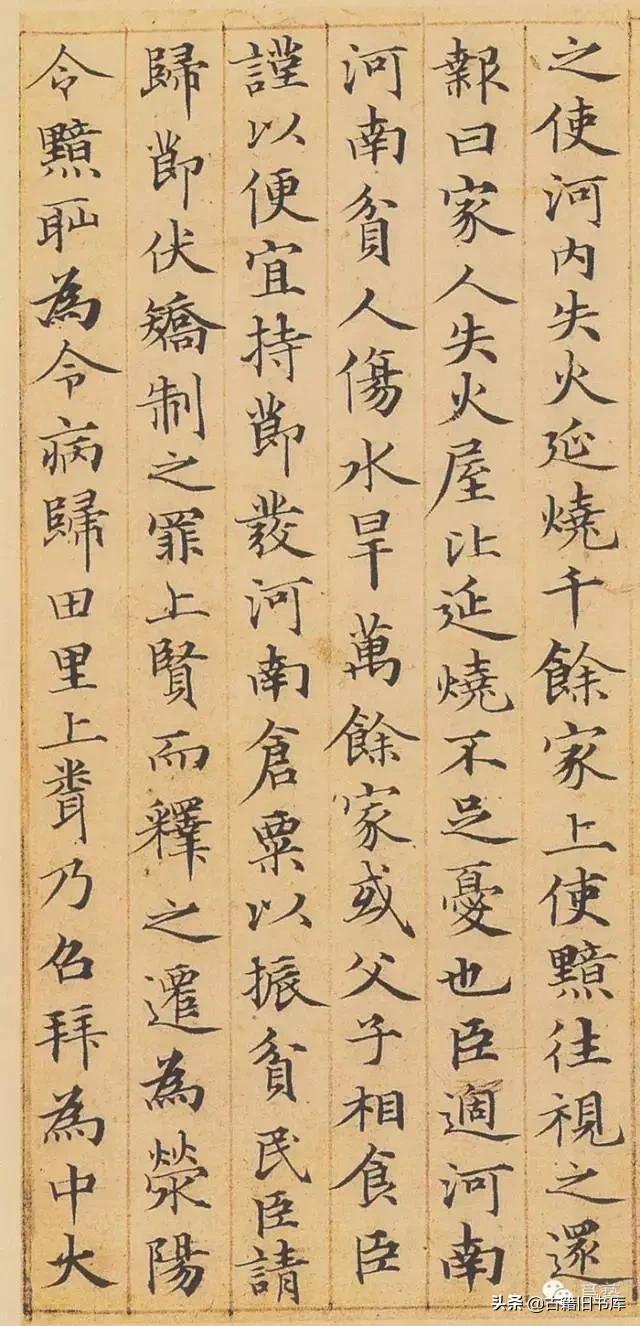 之使河内失火延燒千餘家上使黯往視之還
報曰家人失火屋比延燒不足憂也臣適河南
河南貧人傷水旱萬餘家或父子相食臣
謹以便宜持節發河南倉粟以振貧民臣請
歸節伏矯制之罪上賢而釋之遷為滎陽
令黯恥為令病歸田里上聞乃召拜為中大
头条@古籍旧书库